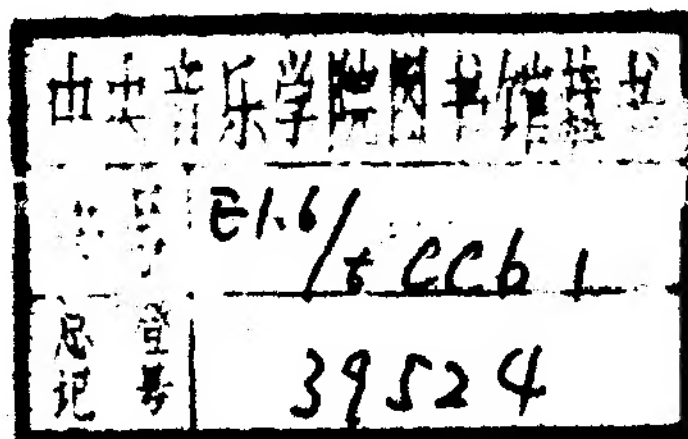 中央音乐学院图书馆藏书
书号 E1.6/t CCb 1
总登记号 39524